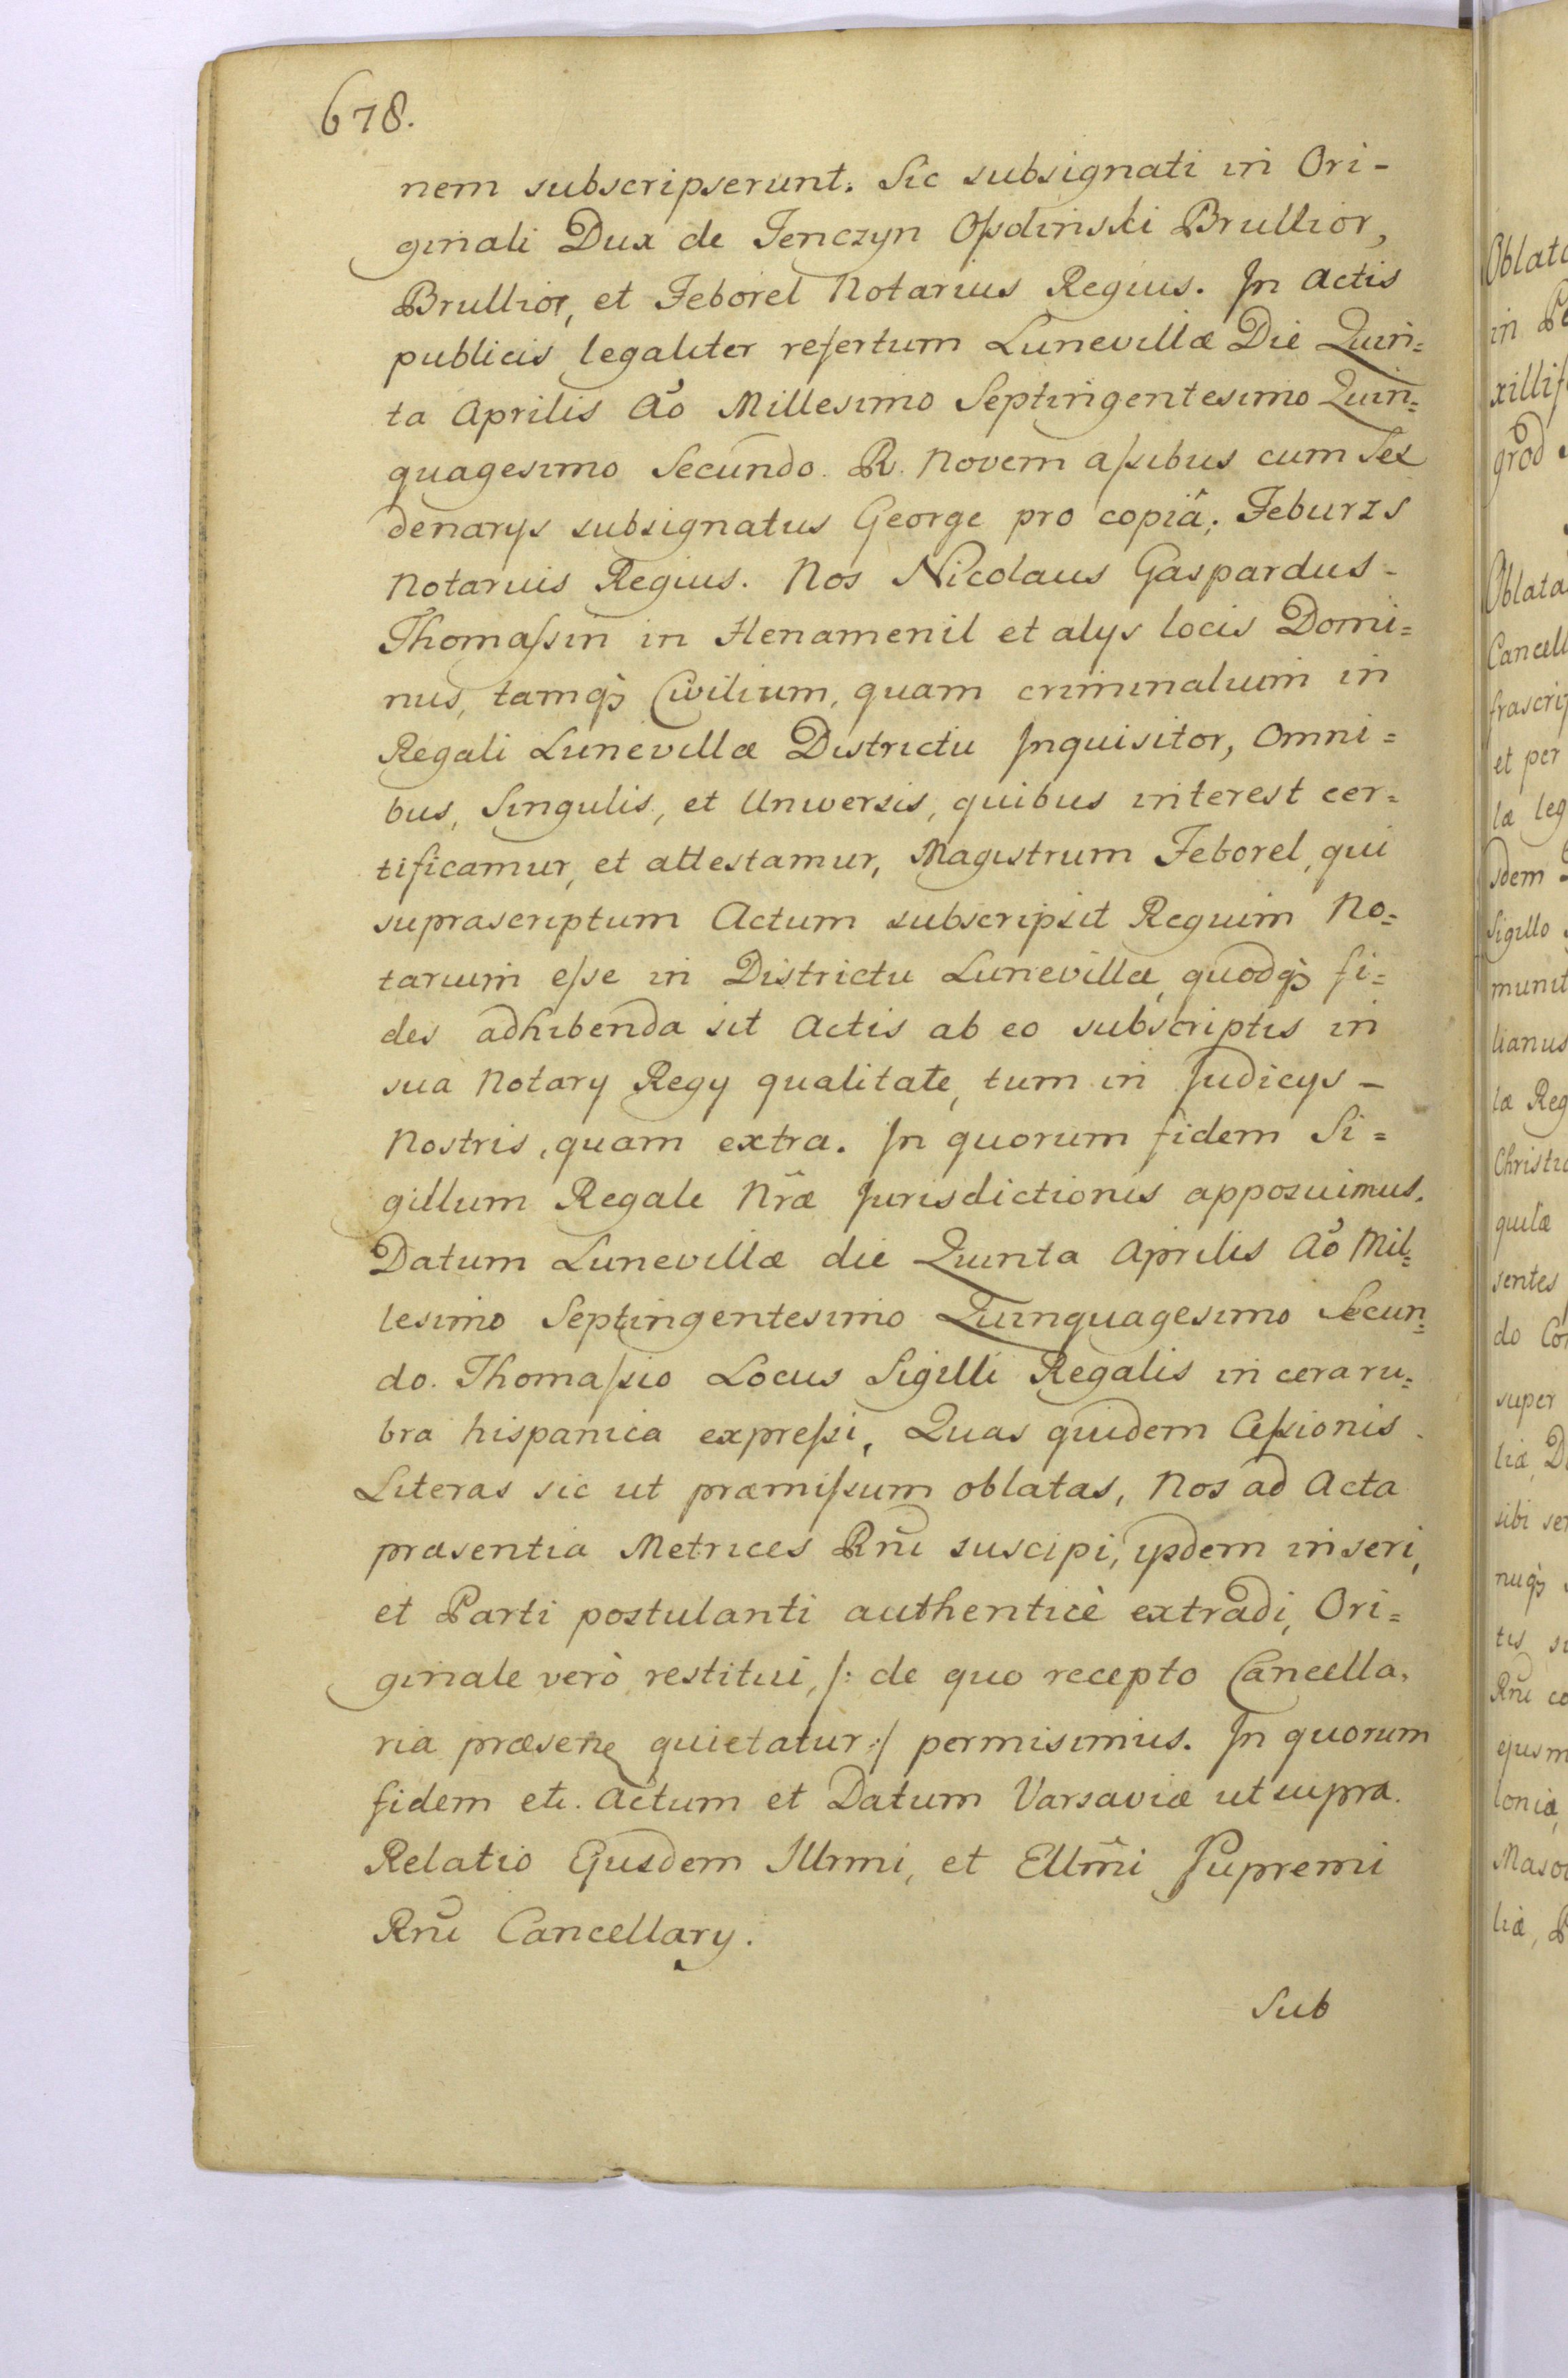 678.
nem subscripserunt. Sic subsignati in Ori-
ginali Dux de Tenczyn Oſsdinski Brullior,
Brullior, et Feborel Notarius Regius. In Actis
publicis legaliter refertum Lunevillæ Die Quin=
ta Aprilis Aō Millesimo Septingentesimo Quin=
quagesimo Secundo. R. Novem aſsibus cum Sex
denarys subsignatus George pro copiâ; Feburzs
Notarius Regius. Nos Nicolaus Gaspardus-
Thomaſsin in Henamenil et alys locis Domi=
nus, tamq̃ Civilium, quam criminalium in
Regali Lunevillæ Districtu Inquisitor, Omni=
bus, Singulis, et Universis, quibus interest cer=
tificamur, et attestamur, Magistrum Feborel, qui
suprascriptum Actum subscripsit Regium No=
tarium eſse in Districtu Lunevillæ, quodq̃ fi=
des adhibenda sit Actis ab eo subscriptis in
sua Notary Regy qualitate, tum in Judicys-
Nostris, quam extra. In quorum fidem Si=
gillum Regale Nr̃æ Jurisdictionis apposuimus.
Datum Lunevillæ die Quinta Aprilis Aō Mil=
lesimo Septingentesimo Quinquagesimo Secun=
do. Thomaſsio Locus Sigilli Regalis in cera ru=
bra hispanica expreſsi, Quas quidem Ceſsionis
Literas sic ut præmiſsum oblatas, Nos ad Acta
præsentia Metrices Rñi suscipi, ysdem inseri,
et Parti postulanti authenticè extradi, Ori=
ginale verò restitui, /: de quo recepto Cancella=
ria præsens quietatur :/ permisimus. In quorum
fidem etc. Actum et Datum Varsaviæ ut supra.
Relatio Ejusdem Illrmi, et Ellm̃i Supremi
Rñi Cancellary.
Sub